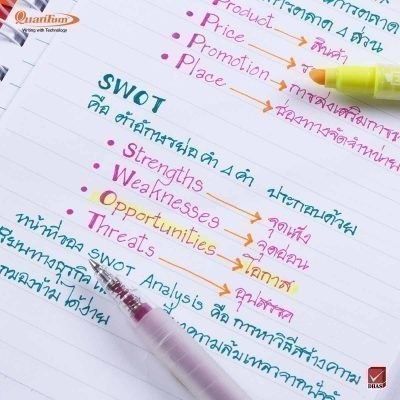 Quantum
Writing with Technology
Product → สินค้า
• Price
• Promotion → การส่งเสริมการ
• Place → ช่องทางจัดจำหน่าย
SWOT
คือ ตัวอักษรย่อคำ 4 คำ ประกอบด้วย
• Strengths → จุดแข็ง
• Weaknesses → จุดอ่อน
• Opportunities → โอกาส
• Threats → อุปสรรค
หน้าที่ของ SWOT Analysis คือ การหาวิธีสร้างความ
ความล้มเหลวจาก
มองข้ามได้ง่าย
DHAS